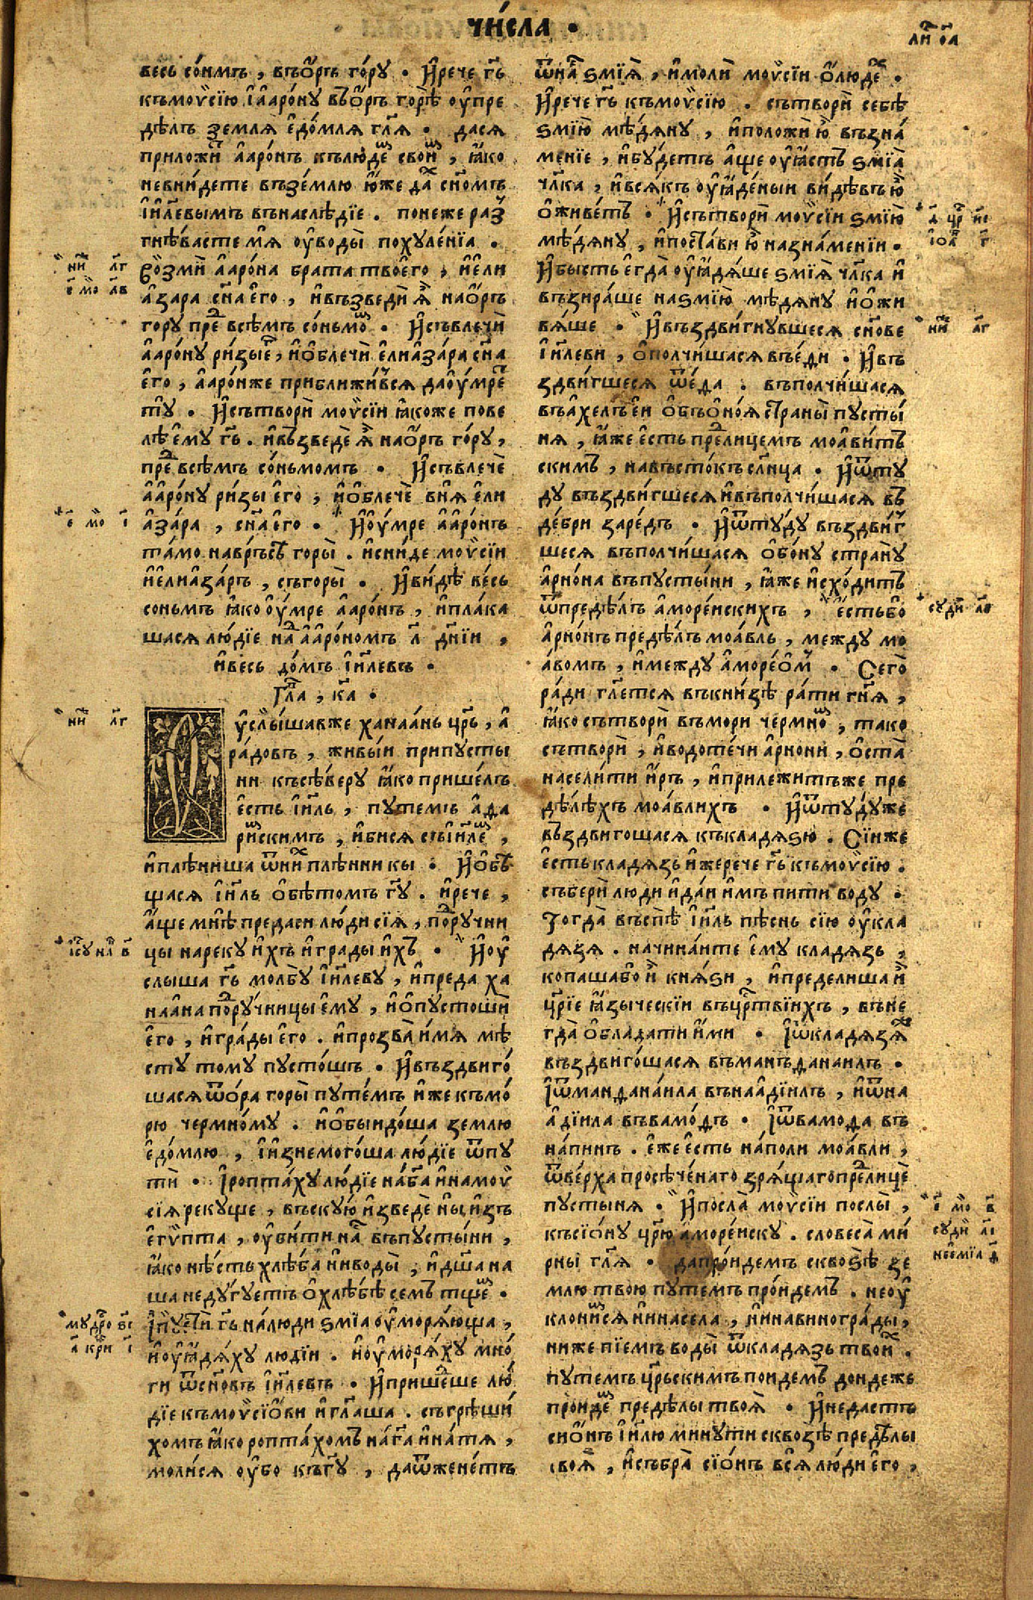 чи́сла .
ли҃ ѻ҃а
весь со́имъ , въѻ҆́ръ го́ру . И҆рече г҃ь
къмоѷсїю і҆аро́ну въѻ҆́ръ горѣ̀ ѹ҆пре
дѣлъ землѧ̀ є҆до́млѧ гл҃ѧ . дасѧ
приложи́т а҆аро́нъ клюдем свои́м , ꙗ҆ко
невни́дете въꙁе́млю ю҆́же дах сн҃омъ
і҆и҃левымъ внаслѣ́дїе . понеже раз
гнѣ́васте мѧ ѹ҆воды̀ похуле́нїѧ .
Воꙁмѝ а҆аро́на брата твоего̀ , и҆є҆ли
а҆ꙁара сн҃а є҆го̀ , и҆въꙁведѝ ѧ҆̀ наѻ҆ръ
гору пред всѣ́мъ со́ньмом . И҆съвлечѝ
а҆аро́ну ри́ꙁы є҆го̀ , и҆ѻ҆блечѝ є҆лиаꙁа́ра сн҃а
є҆го̀ , а҆аро́нже приближи́всѧ даѹ҆́мрет
тꙋ̀ . И҆сътворѝ моѷсїи ꙗ҆коже пове
лѣ̀ є҆мꙋ г҃ь . и҆въꙁведѐ ѧ҆̀ наѻ҆ръ го́рꙋ ,
пред всѣ́мъ со́ньмомъ . И҆съвлечѐ
а҆аро́ну ри́ꙁы є҆го̀ , и҆ѻ҆блечѐ внѧ̀ є҆ли
а҆ꙁа́ра , сн҃а є҆го̀ . И҆ѹ҆́мре а҆аро́нъ
та́мо наврьсѣ̀ горы̀ . и҆сни́де моѷсїи
и҆є҆лиаꙁа́ръ , съгоры̀ . И҆ви́дѣ ве́сь
соньмъ ꙗ҆ко ѹ҆́мре а҆аро́нъ , и҆пла́ка
шасѧ лю́дїе над а҆аро́номъ л҃ дн҃їи ,
и҆весь до́мъ і҆и҃левъ .
Гла , к҃а .
И ѹ҆слы́шавже ханаа́нь цр҃ь , а҆
ра́довъ , живы́и припусты
ни късѣ́верꙋ ꙗ҆ко пришелъ
є҆сть і҆и҃ль , путемъ а҆да
ри́мскимъ , и҆бисѧ съі҆и҃лем ,
и҆плѣни́ша ѿних плѣ́нники . И҆ѻ҆бѣ
щасѧ і҆и҃ль ѻ҆бѣ́томъ г҃ꙋ . и҆рече ,
а҆́ще мнѣ̀ предаси лю́ди сїѧ̀ , подручни
цы нареку и҆хъ и҆грады и҆хъ . И҆ѹ҆
слыша г҃ь молбꙋ і҆и҃леву , и҆преда ха
наана подру́чницы є҆мꙋ , и҆ѻ҆пустошѝ
є҆го̀ , и҆гра́ды є҆го̀ . и҆проꙁва̀ и҆́мѧ мѣ́
сту тому пусто́шъ . И҆въꙁдвиго́
шасѧ ѿѻ҆́ра горы̀ путе́мъ и҆же къмо́
рю чермно́му . и҆ѻ҆быидо́ша ꙁемлю
є҆до́млю , і҆иꙁнемого́ша лю́дїе ѿпꙋ
тѝ . І҆ропта́ху лю́дїе на́б҃а и҆намоѷ
сїѧ рекꙋще , въскую и҆ꙁведѐ ны̀ , иꙁъ
є҆гѵпта , ѹ҆би́ти нас въпꙋсты́ни ,
ꙗ҆ко нѣ́сть хлѣ́ба ниводы̀ , и҆дш҃а на
ша недꙋ́гꙋетъ ѻ҆хлѣ́бѣ семъ тще́м .
І҆пꙋстѝ г҃ь на́люди ѕмїа ѹ҆морѧ́юща ,
и҆ѹ҆ꙗдѧ́хꙋ людїи . и҆ѹ҆морѧ́хꙋ мно́
ги ѿсн҃овъ і҆и҃левъ . И҆пришедше лю́
дїе къмоѷсїѻви и҆гл҃аша . съгрѣши́
хомъ ꙗ҆ко ропта́хомъ на́г҃а и҆на́тѧ ,
моли́сѧ ѹ҆бо къг҃ꙋ , даѿжене́тъ
ѿнас ѕмїѧ̀ , и҆молѝ моѷсїи ѻ҆лю́дех .
И҆рече г҃ь къмоѷсїю . сътворѝ себѣ̀
ѕмїю мѣ́дѧнꙋ , и҆положѝ ю҆̀ въꙁна́
менїе , и҆бꙋдетъ а҆ще ѹ҆ꙗ҆́стъ ѕмїѧ̀
чл҃ка , и҆всѧкъ ѹ҆ꙗ҆де́ныи ви́дѣвъ ю҆̀
ѻ҆живе́тъ . И҆сътворѝ моѷсїи ѕмїю̀
мѣ́дѧнꙋ , и҆поста́ви ю҆̀ наꙁна́менїи .
И҆бы́сть є҆гда̀ ѹ҆ꙗдѧ́ше ѕмїѧ̀ чл҃ка и҆
въꙁира́ше наѕмїю̀ мѣ́дѧнꙋ и҆ѻ҆жи
вѧ́ше . И҆въꙁдви́гнꙋвшесѧ сн҃ове
і҆и҃леви , ѻ҆полчи́шасѧ въе́ди . И҆въ
ꙁдви́гшесѧ ѿє҆́да . въполчи́шасѧ
въа҆хелъе́и ѻ҆бъѻнꙋ́ѧ страны̀ пꙋсты́
нѧ , ꙗ҆же є҆сть прелицемъ моави́тъ
скимъ , навъсто́къ сл҃нца . И҆ѿтꙋ
дꙋ въꙁдви́гшесѧ и҆въполчи́шасѧ въ
де́бри ꙁаре́дъ . И҆ѿтꙋ́дꙋ въꙁдви́г
шесѧ въполчи́шасѧ ѻ҆бо́нꙋ странꙋ
а҆рно́на въпꙋсты́ни , ꙗ҆же и҆схо́дитъ
ѿпредѣ́лъ а҆море́искихъ , є҆́стьбо
а҆рно́нъ предѣ́лъ моа́вль , междꙋ мо
а́вомъ , и҆междꙋ а҆море́ѻм . Сего̀
ра́ди гл҃етсѧ въкни́ꙁѣ ра́ти гн҃ѧ ,
ꙗ҆ко сътворѝ въмори чермно́м , тако
сътворѝ , и҆водоте́чи а҆рнони , ѻ҆ста́
насели́ти и҆́ръ , и҆прилежи́тъже пре
дѣ́лѣхъ моа́влихъ . И҆ѿтꙋдꙋже
въꙁдвигошасѧ къкладѧꙁю . Сїиже
є҆сть кладѧꙁь и҆жерече г҃ь къмоѷсїю .
съберѝ люди и҆да́и и҆мъ пити водꙋ .
Тогда̀ въспѣ̀ і҆и҃ль пѣснь сїю ѹ҆кла
дѧꙁѧ . начина́ите є҆мꙋ кладѧꙁь ,
копашабо и҆̀ кнѧꙁи , и҆пределиша и҆̀
цр҃їе ꙗ҆ꙁы́ческїи въцр҃твїихъ , внѣе
гда̀ ѻ҆блада́ти и҆́ми . І҆ѿкладѧꙁѧ
въꙁдвиго́шасѧ въманъданаилъ .
І҆ѿманъдана́ила въна́адїилъ , и҆ѿна
а҆дїила въвамо́дъ . І҆ѿвамода въ
на́пинъ . є҆́же є҆сть на́поли моа́вли ,
ѿве́рха просѣче́наго ꙁрѧ́щаго прелицѐ
пꙋстынѧ . И҆посла̀ моѷсїи послы̀ ,
късїо́нꙋ цр҃ю а҆море́искꙋ . словеса̀ ми́
рны гл҃ѧ . дапро́идемъ сквоꙁѣ̀ ꙁе
млю твою̀ пꙋте́мъ про́идемъ . неѹ҆
клони́мсѧ нинасе́ла , нинавиногра́ды ,
ниже пїе́мъ воды̀ ѿкладѧꙁь твои́х .
пꙋтемъ цр҃ьскимъ поидемъ дондеже
про́идем предѣ́лы твоѧ̀ . И҆недастъ
сио́нъ і҆и҃лю минꙋти сквоꙁѣ̀ предѣ́лы
своѧ̀ , и҆събра̀ сїо́нъ всѧ̀ лю́ди є҆го̀ ,